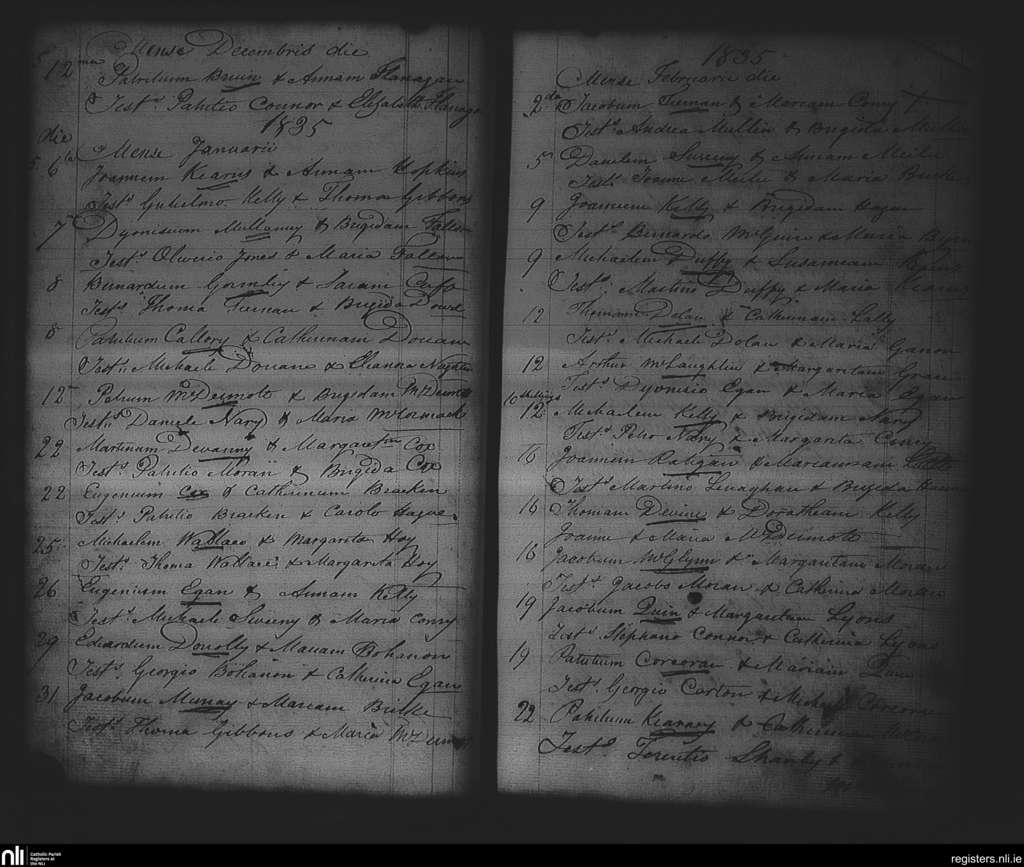 Mense Decembris die
12 Patritium Bruin & Annam Flanagan
Test.s Patritio Connor & Elizabeth Flanaga
1835
die
Mense Januarii
6 Joannem Kearns & Annam Hopkins
Test.s Gulielmo Kelly & Thoma Gibbons
7 Dyonisium Mullanny & Brigidam Fallon
Test.s Oliverio Jones & Maria Fallon
8 Bernardum Gormley & Saram
Test.s Thoma & Brigida Dowd
8 Patritium Callory & Catherinam Douan
Test.s Michaele Douane & Elianna
12 Petrum McDermott & Brigidam McDermott
Test.s Daniele Nary & Maria McCormack
22 Martinum Devanny & Margaretam Cox
Test.s Patritio Moran & Brigida Cox
22 Eugenium Cox & Catherinam Bracken
Test.s Patritio Bracken & Carolo Hague
25 Michaelem Wallace & Margarita Hoy
Test.s Thoma Wallace & Margarita Hoy
26 Eugenium Egan & Annam Kelly
Test.s Michaele Sweeny & Maria Conry
29 Eduardum Donolly & Mariam Bohanon
Test.s Georgio Bohanon & Catherina Egan
31 Jacobum Murray & Mariam Burke
Test.s Thoma Gibbons & Maria McDermott
1835
Mense Februarii die
2da Jacobum Tiernan & Mariam Conry
Test.s Andrea Mullin & Brigida
5 Danielem Sweeny & Miriam Meile
Test.s Joanne Meile & Maria Burke
9 Joannem Kelly & Brigidam Hagan
Test.s Bernardo McGuire & Maria
9 Michaelem Duffy & Susannam
Test.s Martino Duffy & Maria
12 Thomam Dolan & Catherinam Lally
Test.s Michaele Dolan & Maria Ganon
12 Arthur McLaughlin & Margaretam
Test.s Dyonisio Egan & Maria Egan
10 shillings
12 Michaelem Kelly & Brigidam Nary
Test.s Petro Nary & Margarita Conry
16 Joannem Ratigan &
Test.s Martino Lenaghan & Brigida
16 Thomam Devine & Dorotheam Kelly
Joanne & Maria McDermott
16 Jacobum McGlynn & Margaretam Moran
Test.s Jacobo Moran & Catherina Moran
19 Jacobum Quin & Margaretam Lyons
Test.s Stephano Connor & Catherina Lyons
19 Patritium Corcoran & Mariam
Test.s Georgio Carlon & Michael Corcoran
22 Patritium Kearney & Catherinam
Test.s Terentio Shanly &
nli
Catholic Parish
Registers at
the NLI
registers.nli.ie